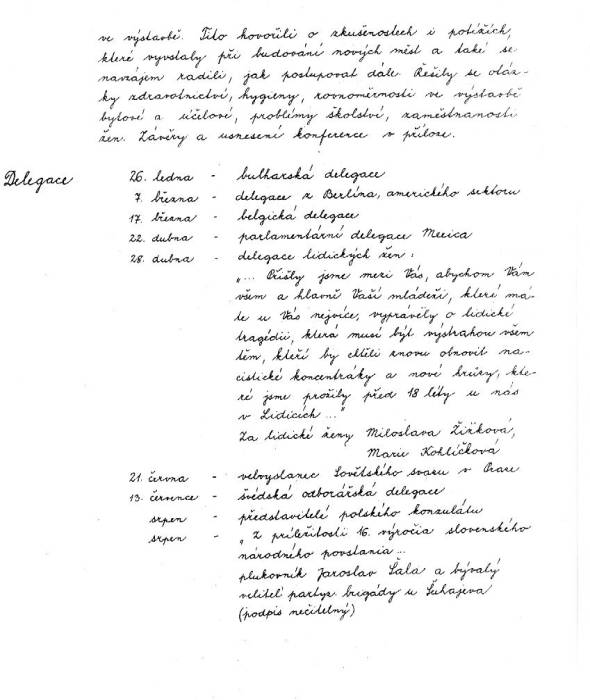 ve výstavbě. Tito hovořili o zkušenostech i potížích,
které vyvstaly při budování nových měst a také se
navzájem radili, jak postupovat dále. Řešily se otáz-
ky zdravotnictví, hygieny, rovnoměrnosti ve výstavbě
bytové a účelové, problémy školství, zaměstnanosti
žen. Závěry a usnesení konference v příloze.
Delegace
26. ledna - bulharská delegace
7. března - delegace z Berlína, amerického sektoru
17. března - belgická delegace
22. dubna - parlamentární delegace Mexica
28. dubna - delegace lidických žen:
"... Přišly jsme mezi Vás, abychom Vám
všem a hlavně Vaší mládeži, které má-
te u Vás nejvíce, vyprávěly o lidické
tragédii, která musí být výstrahou všem
těm, kteří by chtěli znovu obnovit na-
cistické koncentráky a nové hrůzy, kte-
ré jsme prožily před 18 léty u nás
v Lidicích ..."
Za lidické ženy Miloslava Žižková,
Marie Kohlíčková
21. června - velvyslanec Sovětského svazu v Praze
13. července - švédská odborářská delegace
srpen - představitelé polského konzulátu
srpen - "Z príležitosti 16. výročia slovenského
národného povstania...
plukovník Jaroslav Šála a bývalý
velitel partyz. brigády u Šuhajeva
(podpis nečitelný)